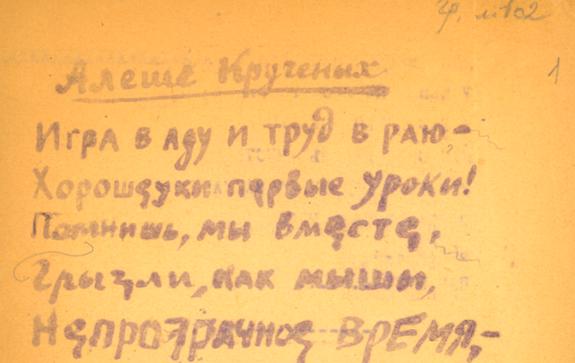 1
Алеше Крученых
Игра в аду и труд в раю –
Хорошеуки первые уроки!
Помнишь, мы вместе,
Грызли, как мыши,
Непрозрачное время, –